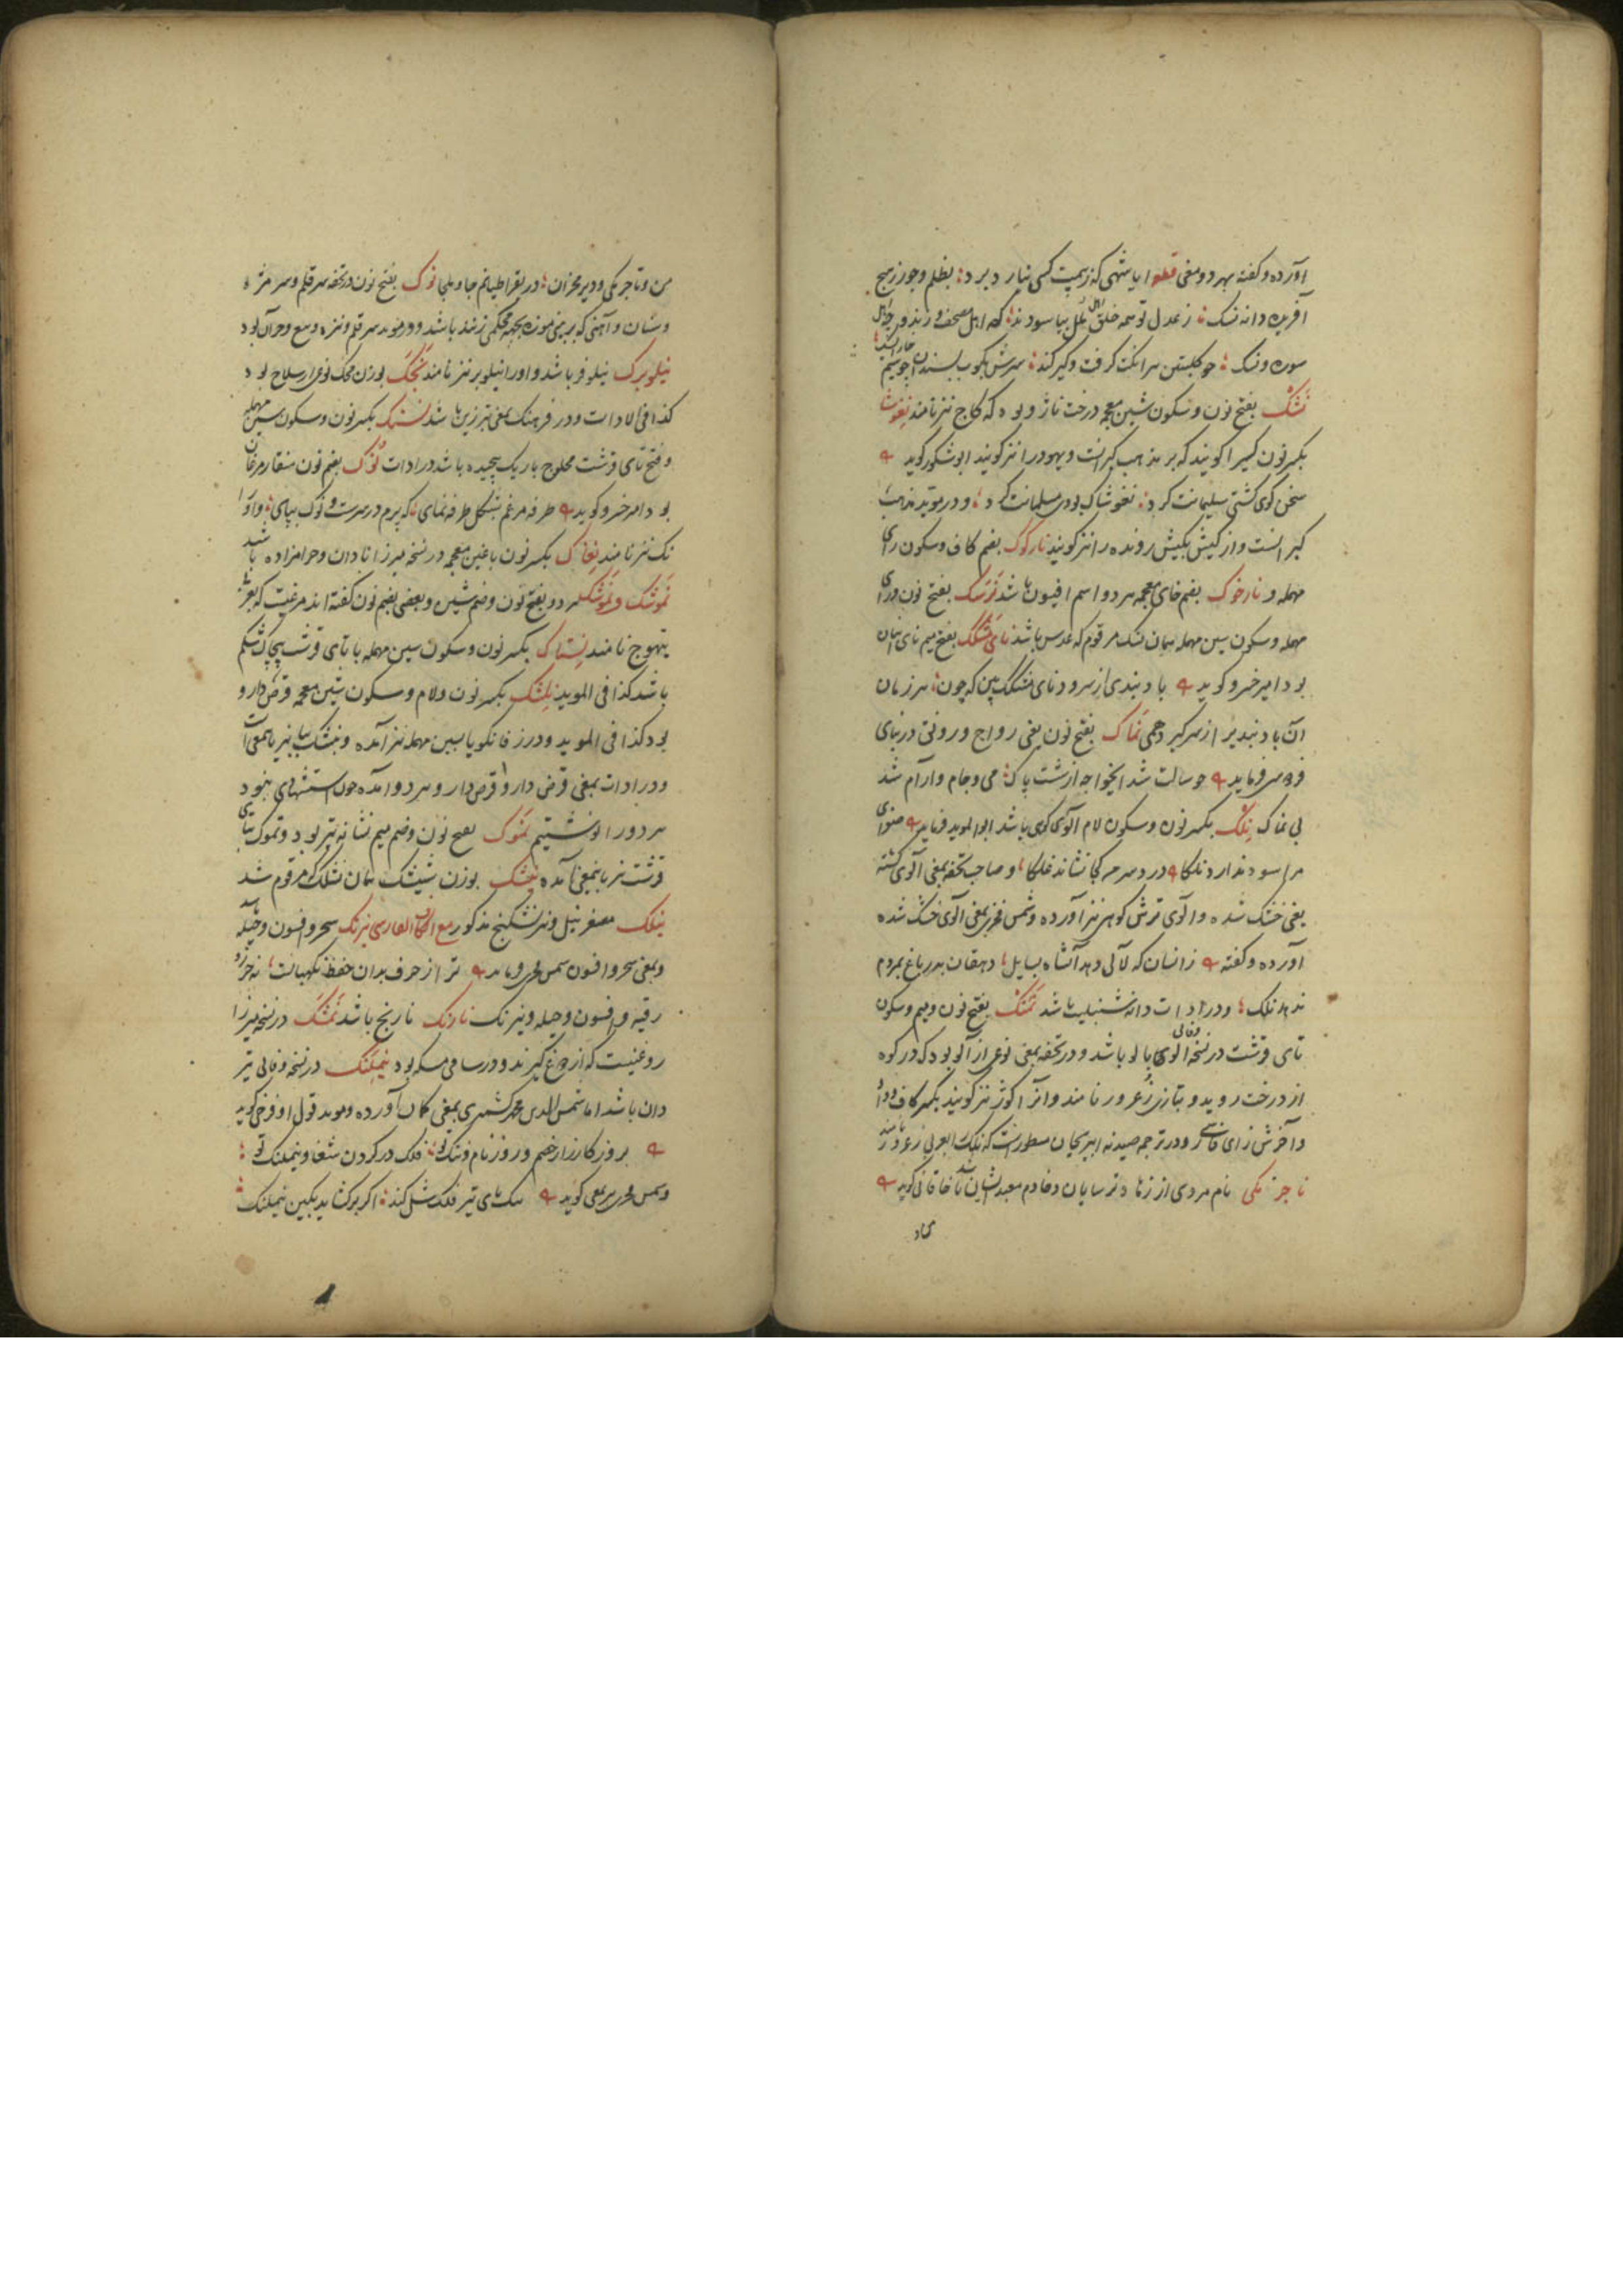 آورده و گفته بهر دو معنی قطعه ایا شهی که ز هیبت کسی نیارد برد ؛ بظلم و جور ز هیچ
آفریده دانه نسک ؛ ز عدل تو همه خلق بیاسودند ؛ که اهل مصحف و زند
سوره و نسک ؛ چو کلبتین سر انگشت گرفت و گیر کند ؛ سرش بکوب بسندان
نشک بفتح نون و سکون شین معجمه درخت ناژو بود که کاج نیز نامند نغوشا
بکسر نون کسی را گویند که بر مذهب گبرانست و یهود را نیز گویند ابو شکور گوید
سخن گوی گشتی سلیمانت کرد ؛ نغوشاک بودی مسلمانت کرد ؛ و در موید مذهب
گبرانست و از کیش بکیش رونده را نیز گویند نارکوک بضم کاف و سکون رای
مهمله و نارخوک بضم خای معجمه هر دو اسم افیون باشد نرسک بفتح نون و رای
مهمله و سکون سین مهمله همان نسک مرقوم که عدس باشد نای مشکک بفتح میم نای انبان
بود امیر خسرو گوید باد بندی از سرود نای مشکک بین که چون ؛ هر زمان
آن باد بندیر از سر گیرد همی نماک بفتح نون یعنی رواج و رونق در نسای
فردوسی فرماید چو سالت شد ایخواجه از شست پاک ؛ می و جام و آرام شد
بی نماک نلک بکسر نون و سکون لام آلوی کوهی باشد ابو الموید فرماید صفرای
مرا سود ندارد نلکا درد سر مر کجا نشاند علکا ؛ و صاحب تحفه بمعنی آلوی کشته
یعنی خشک شده و آلوی ترش کوهی نیز آورده و شمس فخری بمعنی آلوی خشک شده
آورده و گفته ز انسان که لآلی دهد آنشاه بسایل ؛ دهقان بدر باغ بمردم
ندهد نلک ؛ و در ادات دانه شنبلیت باشد نمتک بفتح نون و میم و سکون
تای قرشت در نسخه وفائی آلوی بالو باشد و در تحفه بمعنی نوعی از آلو بود که در کوه
از درخت روید و بتازی زعرور نامند و آنرا کوژ نیز گویند بکسر کاف و واو
و آخرش زای فارسی و در ترجمه صیدنه ابو ریحان مسطورست که نلک العربی زعرور نامند
ناجرمکی نام مردی از زهاد ترسایان و خادم معبد ایشان باشد خاقانی گوید
من و ناجرمکی و دیر مخران ؛ در بقراطیانم جا و ملجا نوک بفتح نون در تحفه سر قلم و سر مژه
و سنان و آهنی که بر بینی موزه بجهة محکمی زنند باشد و در موید سر قلم و نیزه و مع و جز آن بود
نیلوبرک نیلوفر باشد و او را نیلوبر نیز نامند نجک بوزن محک نوعی از سلاح بود
کذا فی الادات و در فرهنگ بمعنی تبرزین باشد نستک بکسر نون و سکون سین مهمله
و فتح تای قرشت محلوج باریک پیچیده باشد در ادات نوک بضم نون منقار مرغان
بود امیر خسرو گوید طرفه مرغم بشکل طرفه نمای ؛ که پرم در سرست و نوک بپای ؛ و او را
نک نیز نامند نغاک بکسر نون با غین معجمه در نسخه میرزا نادان و حرامزاده باشد
نموشک و نموشکک هر دو بفتح نون و ضم شین و بعضی بضم نون گفته اند مرغیست که بعربی
تیهوج نامند نستاک بکسر نون و سکون سین مهمله با تای قرشت پیچاک شکم
باشد کذا فی الموید نلشک بکسر نون و لام و سکون شین معجمه قرض دار و
بود کذا فی الموید و در زفانگویا بسین مهمله نیز آمده و نبشک بنا نیز باینمعنی است
و در ادات بمعنی قرض دار و قرض دارو هر دو آمده چون استشهادی نبود
هر دو را نوشتیم نموک بفتح نون و ضم میم نشانه تیر بود و تموک بتای
قرشت نیز باینمعنی آمده نیشک بوزن شیشک همان نشلک که مرقوم شد
نیلک مصغر نیل و نیز نشکنج مذکور مع الکاف الفارسی نیرنگ سحر و افسون و حیله باشد
و بمعنی سحر و افسون شمس فخری فرماید ترا از حرف بدان حفظ نگهبانست ؛ نه حرز و
رقیه و افسون و حیله و نیرنگ نارنگ نارنج باشد نمشک در نسخه میرزا
روغنیست که از دوغ گیرند و در سامی مسکه بود نیملنگ در نسخه وفائی تیر
دان باشد اما شمس الدین محمد کشمیری بمعنی کمان آورده و موید قول او فرخی گوید
بروز کارزار خصم و روز نام و ننگ تو ؛ فلک در گردن شغا و نیملنگ تو ؛
و شمس فخری بر یمعنی گوید بنگ های تیر فلک شل کند ؛ اگر برگشاید بکین نیملنگ